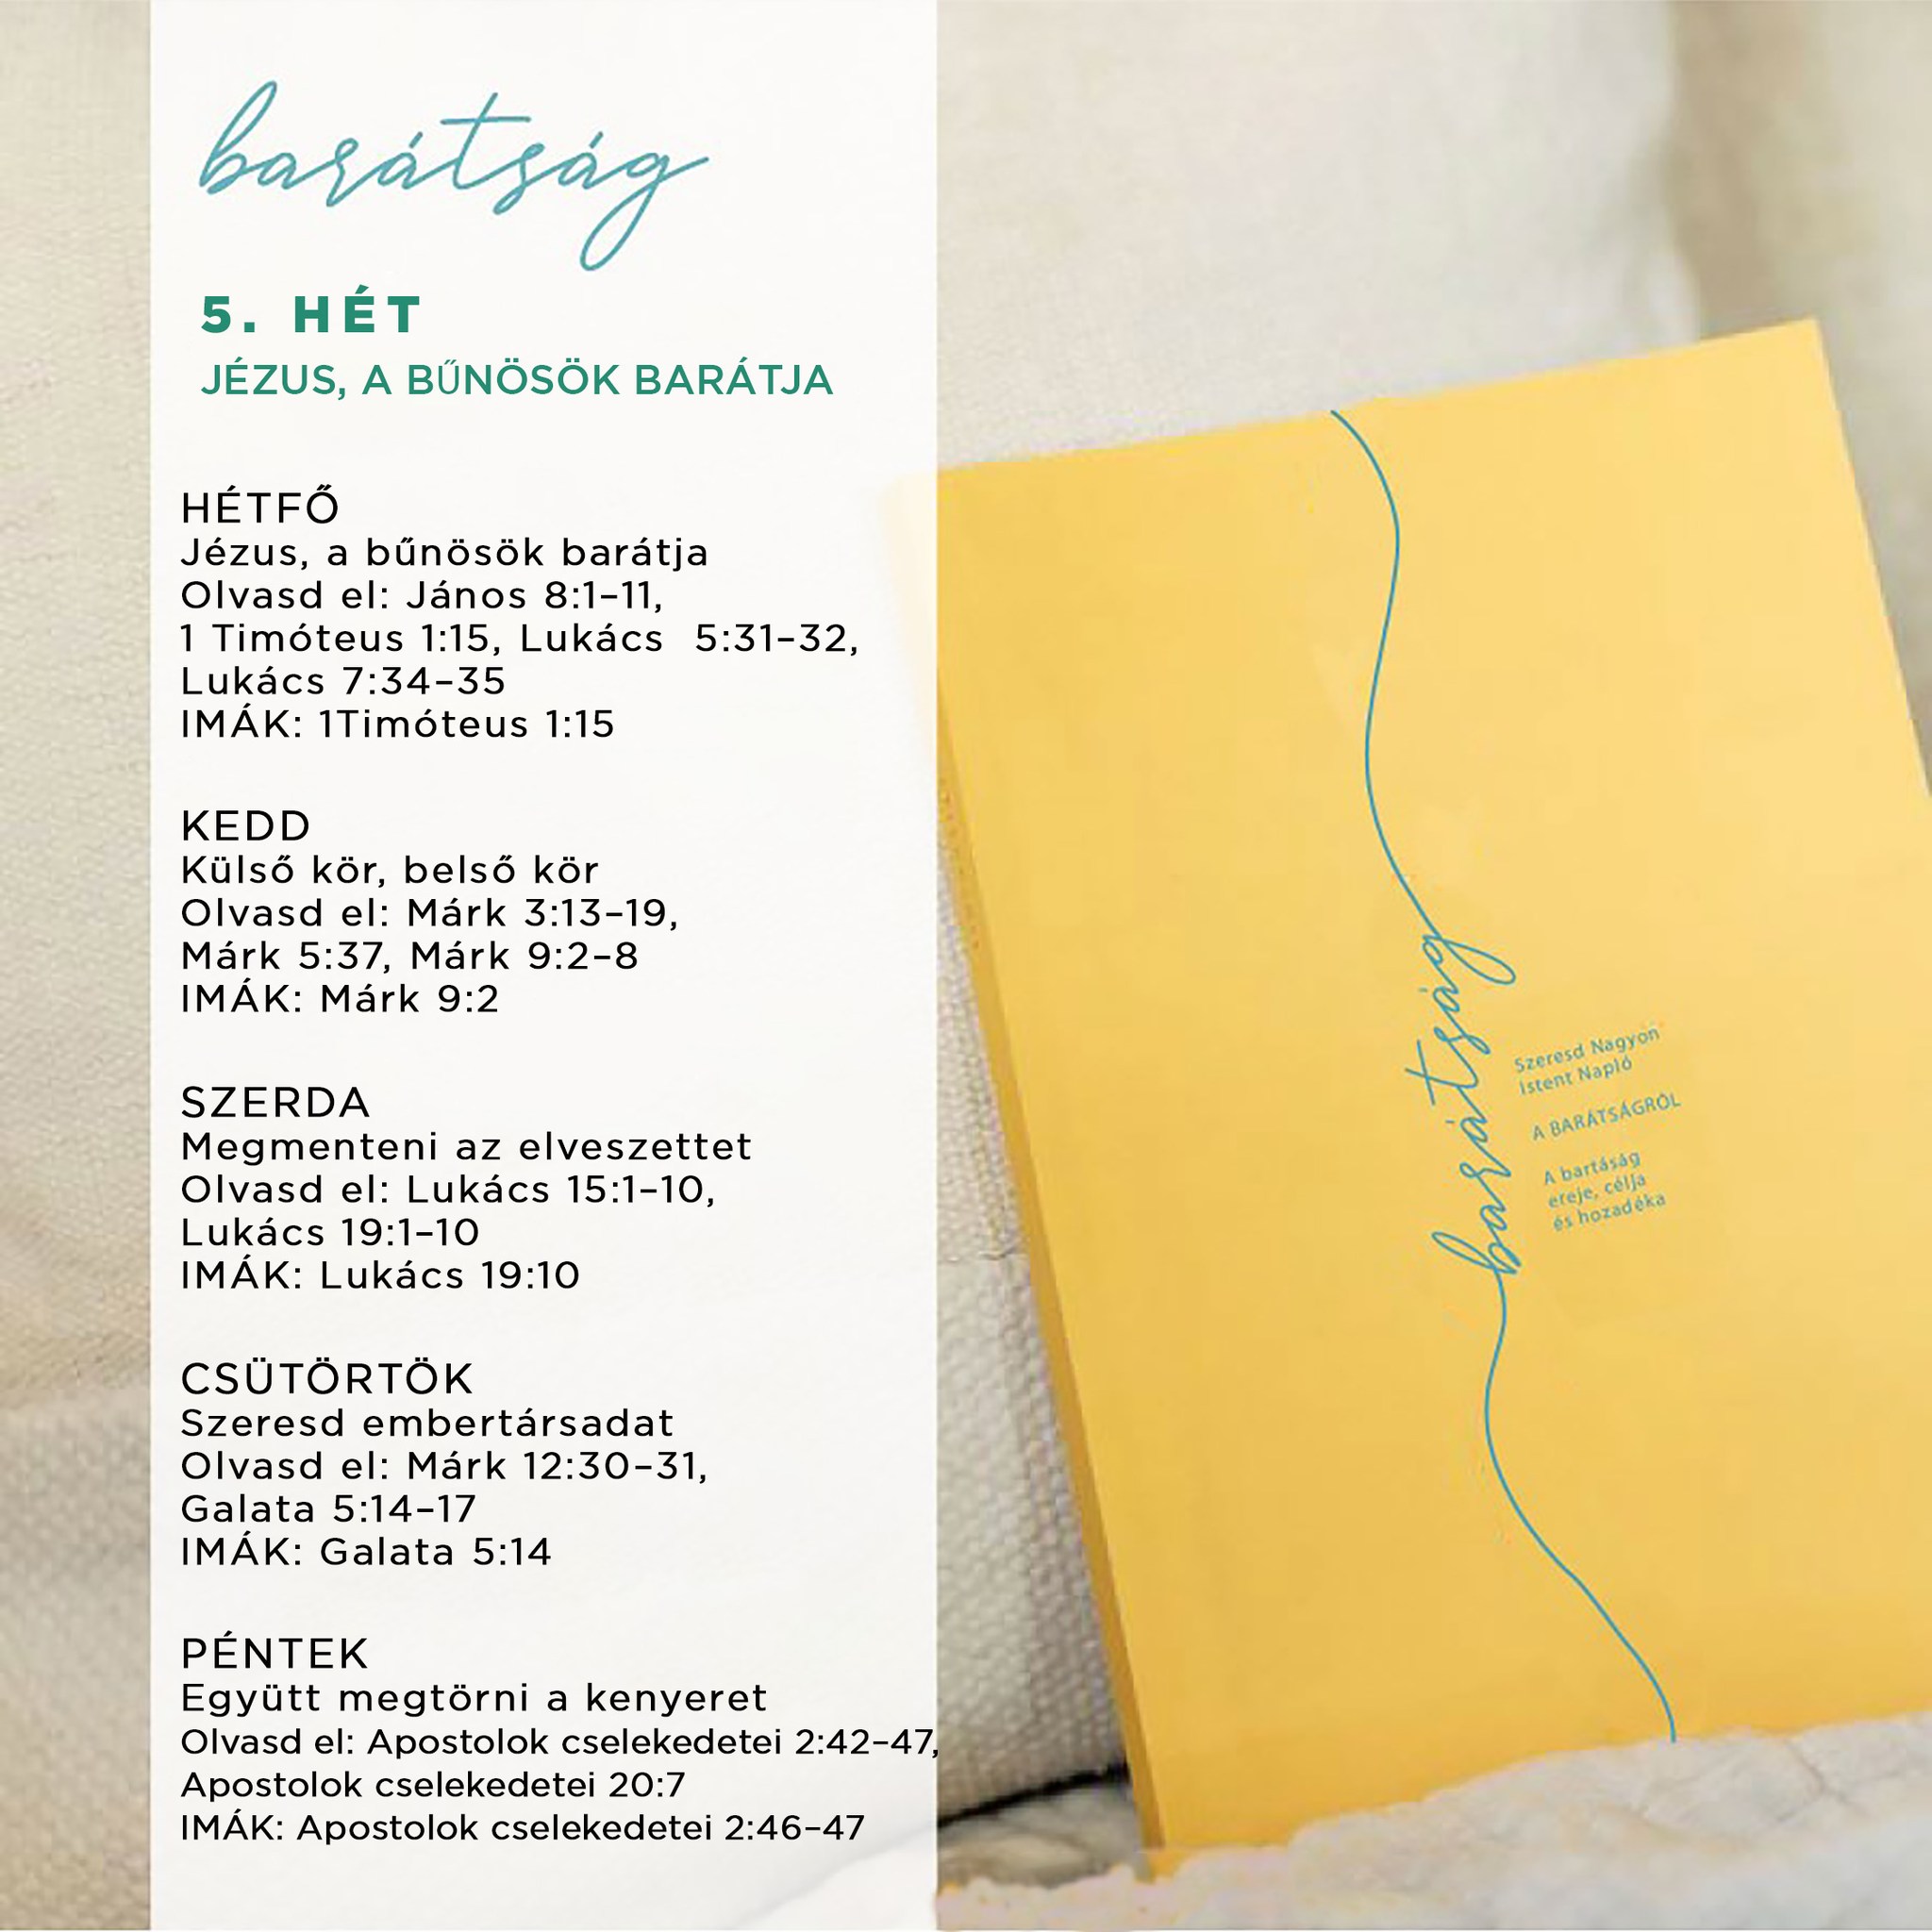 barátság
5. HÉT
JÉZUS, A BŰNÖSÖK BARÁTJA
HÉTFŐ
Jézus, a bűnösök barátja
Olvasd el: János 8:1–11,
1 Timóteus 1:15, Lukács  5:31–32,
Lukács 7:34–35
IMÁK: 1Timóteus 1:15
KEDD
Külső kör, belső kör
Olvasd el: Márk 3:13–19,
Márk 5:37, Márk 9:2–8
IMÁK: Márk 9:2
SZERDA
Megmenteni az elveszettet
Olvasd el: Lukács 15:1–10,
Lukács 19:1–10
IMÁK: Lukács 19:10
CSÜTÖRTÖK
Szeresd embertársadat
Olvasd el: Márk 12:30–31,
Galata 5:14–17
IMÁK: Galata 5:14
PÉNTEK
Együtt megtörni a kenyeret
Olvasd el: Apostolok cselekedetei 2:42–47,
Apostolok cselekedetei 20:7
IMÁK: Apostolok cselekedetei 2:46–47
barátság
Szeresd Nagyon
Istent Napló
A BARÁTSÁGRÓL
A bartáság
ereje, célja
és hozadéka